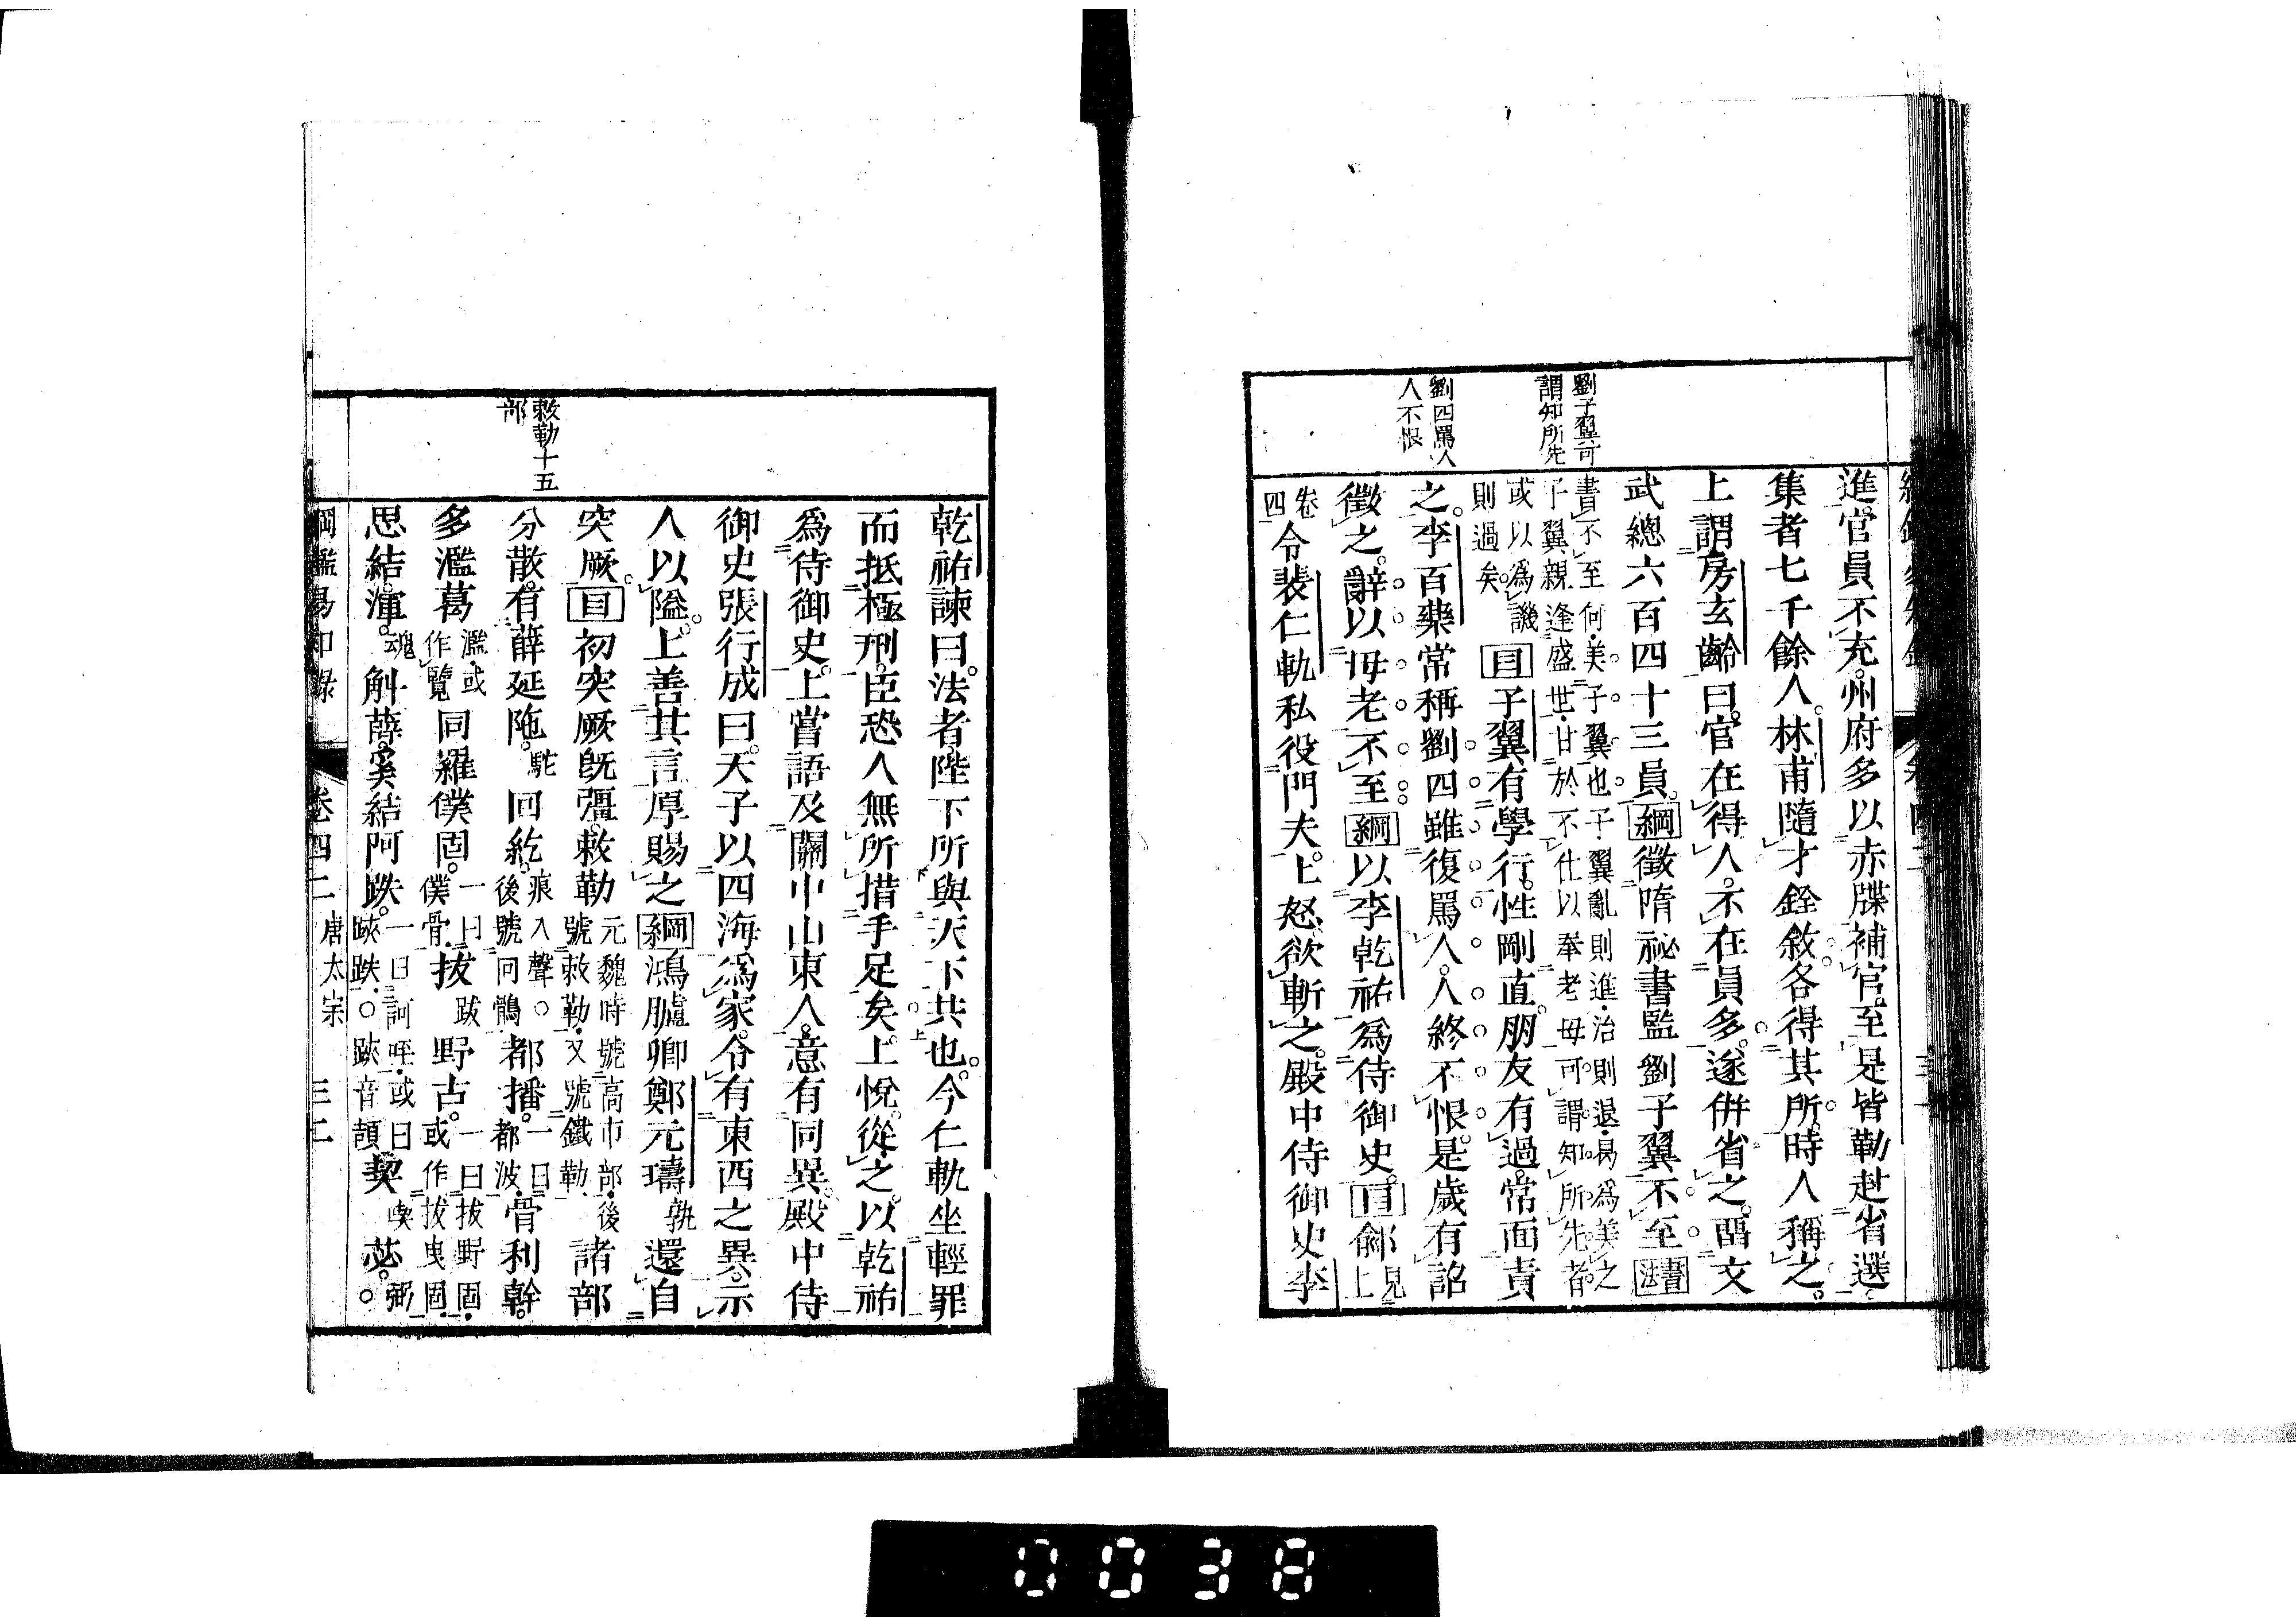 劉子翼可
謂知所先
劉四罵人
人不恨
進官員不充。州府多以赤牒補官至是皆勒赴省選
集者七千餘人。林甫隨才銓敘各得其所。時人稱之。
上謂房玄齡曰。官在得人。不在員多。遂併省之。畱文
武總六百四十三員。綱徵隋祕書監劉子翼不至書法
書不至何美子翼也子翼亂則進治則退易為美之
子翼親逢盛世甘於不仕以奉老母可謂知所先者
或以為譏
則過矣。目子翼有學行。性剛直。朋友有過。常面責
之。李百藥常稱劉四雖復罵人。人終不恨。是歲有詔
徵之。辭以母老。不至綱以李乾祐為待御史。目鄃見上
卷四令裴仁軌私役門夫。上怒欲斬之。殿中侍御史李
乾祐諫曰。法者陛下所與天下共也。今仁軌坐輕罪
而抵極刑。臣恐人無所措手足矣。上悅從之。以乾祐
爲待御史。上嘗語及關中山東人。意有同異。殿中侍
御史張行成曰。天子以四海爲家。令有東西之異。示
人以隘。上善其言厚賜之綱鴻臚卿鄭元璹孰還自
突厥。目初突厥旣彊。敕勒元魏時號高市部後號敕勒又號鐵勒諸部
分散。有薛延陁。駝回紇。痕入聲○後號回鶻都播。一曰都波骨利幹。
多濫葛濫或作覽同羅僕固。一曰僕骨拔跋野古。一曰拔野固或作拔曳固
思結。渾。魂斛薛奚結阿跌。一曰訶咥或曰䟴跌○䟴音頡契喫苾。弼○
敕勒十五
部
綱鑑易知錄 卷四二 唐太宗 三二
0038